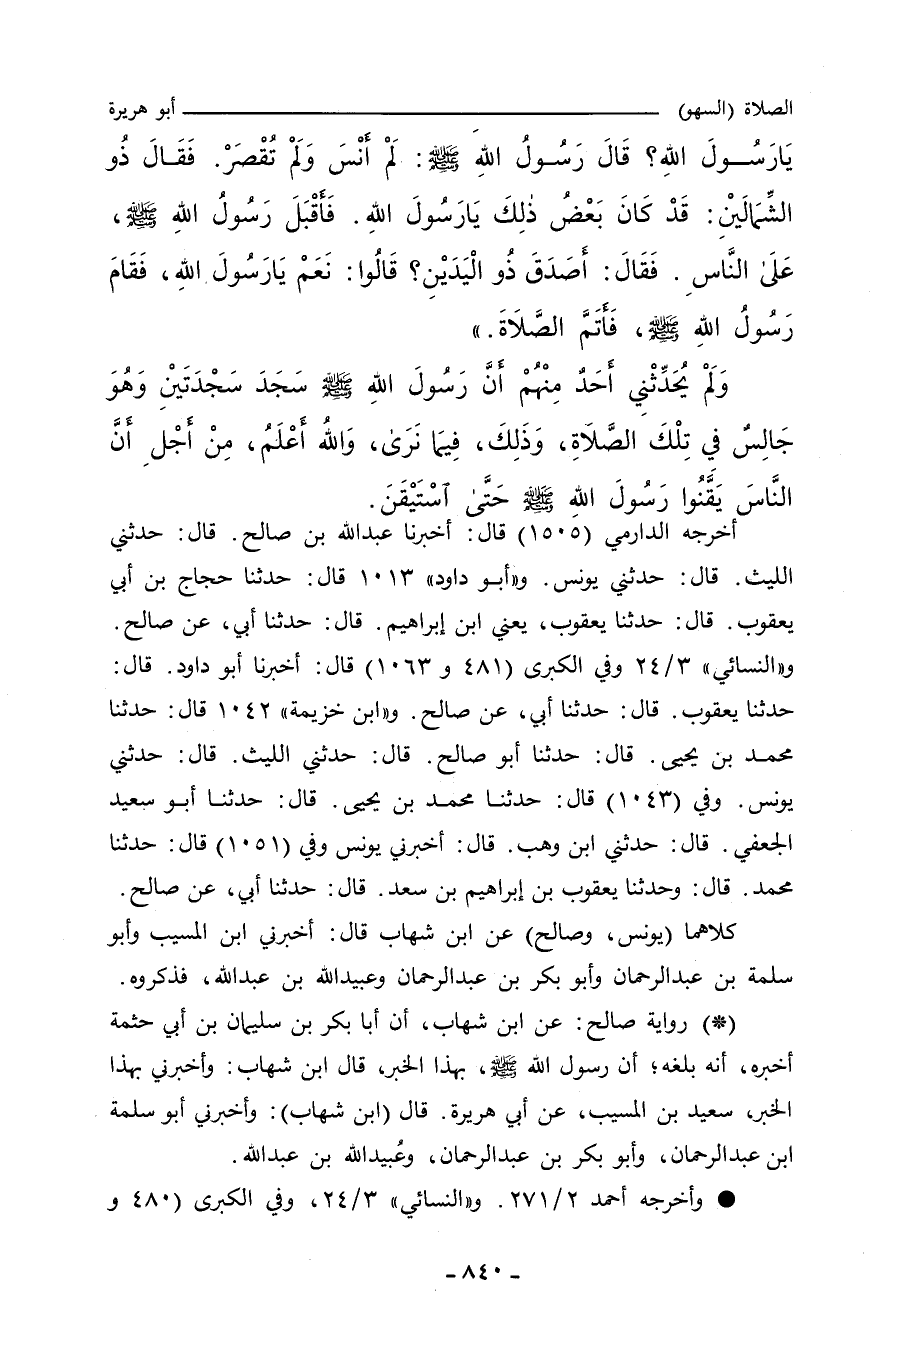 الصلاة (السهو) ــــــــــــــــــــ أبو هريرة
يَارَسُولَ اللهِ؟ قَالَ رَسُولُ اللهِ ﷺ: لَمْ أَنْسَ وَلَمْ تُقْصَرْ. فَقَالَ ذُو
الشِّمَالَيْنِ: قَدْ كَانَ بَعْضُ ذٰلِكَ يَارَسُولَ اللهِ. فَأَقْبَلَ رَسُولُ اللهِ ﷺ،
عَلَىٰ النَّاسِ. فَقَالَ: أَصَدَقَ ذُو الْيَدَيْنِ؟ قَالُوا: نَعَمْ يَارَسُولَ اللهِ، فَقَامَ
رَسُولُ اللهِ ﷺ، فَأَتَمَّ الصَّلَاةَ.»
وَلَمْ يُحَدِّثْنِي أَحَدٌ مِنْهُمْ أَنَّ رَسُولَ اللهِ ﷺ سَجَدَ سَجْدَتَيْنِ وَهُوَ
جَالِسٌ فِي تِلْكَ الصَّلَاةِ، وَذَلِكَ، فِيمَا نَرَىٰ، وَاللهُ أَعْلَمُ، مِنْ أَجْلِ أَنَّ
النَّاسَ يَقَّنُوا رَسُولَ اللهِ ﷺ حَتَّىٰ ٱسْتَيْقَنَ.
أخرجه الدارمي (١٥٠٥) قال: أخبرنا عبدالله بن صالح. قال: حدثني
الليث. قال: حدثني يونس. و«أبو داود» ١٠١٣ قال: حدثنا حجاج بن أبي
يعقوب. قال: حدثنا يعقوب، يعني ابن إبراهيم. قال: حدثنا أبي، عن صالح.
و«النسائي» ٢٤/٣ وفي الكبرى (٤٨١ و ١٠٦٣) قال: أخبرنا أبو داود. قال:
حدثنا يعقوب. قال: حدثنا أبي، عن صالح. و«ابن خزيمة» ١٠٤٢ قال: حدثنا
محمد بن يحيى. قال: حدثنا أبو صالح. قال: حدثني الليث. قال: حدثني
يونس. وفي (١٠٤٣) قال: حدثنا محمد بن يحيى. قال: حدثنا أبو سعيد
الجعفي. قال: حدثني ابن وهب. قال: أخبرني يونس وفي (١٠٥١) قال: حدثنا
محمد. قال: وحدثنا يعقوب بن إبراهيم بن سعد. قال: حدثنا أبي، عن صالح.
كلاهما (يونس، وصالح) عن ابن شهاب قال: أخبرني ابن المسيب وأبو
سلمة بن عبدالرحمان وأبو بكر بن عبدالرحمان وعبيدالله بن عبدالله، فذكروه.
(*) رواية صالح: عن ابن شهاب، أن أبا بكر بن سليمان بن أبي حثمة
أخبره، أنه بلغه؛ أن رسول الله ﷺ، بهذا الخبر، قال ابن شهاب: وأخبرني بهذا
الخبر، سعيد بن المسيب، عن أبي هريرة. قال (ابن شهاب): وأخبرني أبو سلمة
ابن عبدالرحمان، وأبو بكر بن عبدالرحمان، وعُبيدالله بن عبدالله.
● وأخرجه أحمد ٢٧١/٢. و«النسائي» ٢٤/٣، وفي الكبرى (٤٨٠ و
- ٨٤٠ -